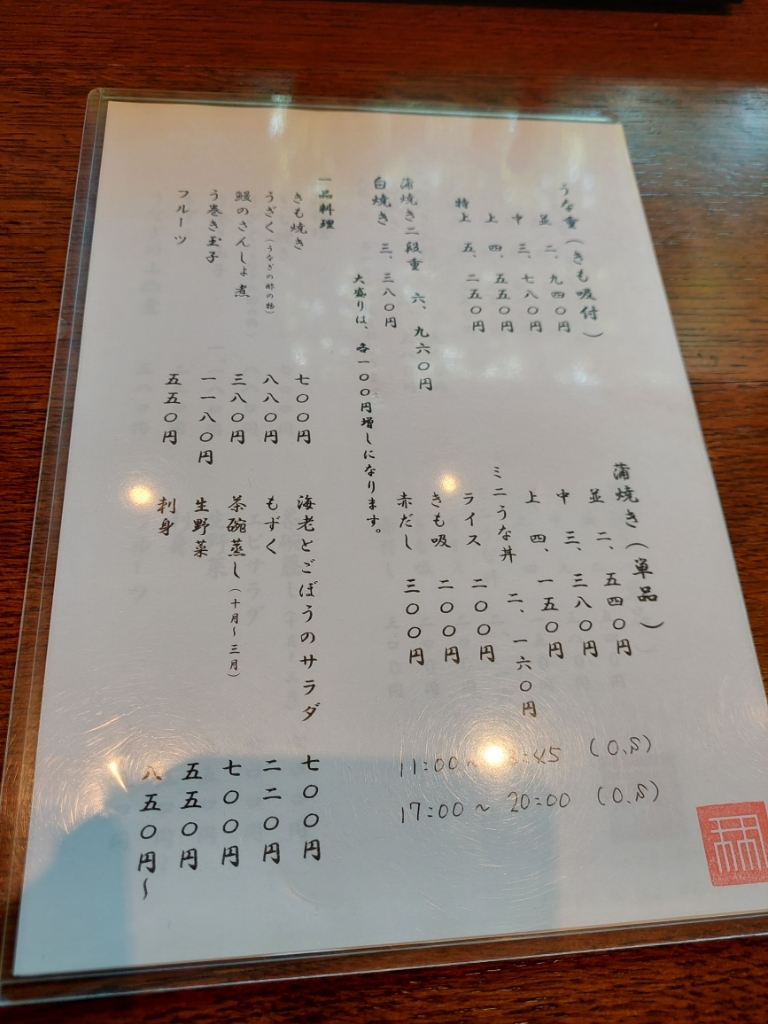 うな重（きも吸付）
並 二、九四〇円
中 三、七八〇円
上 四、五五〇円
特上 五、二五〇円
蒲焼き二段重 六、九六〇円
白焼き 三、三八〇円
大盛りは、各一〇〇円増しになります。
蒲焼き（単品）
並 二、五四〇円
中 三、三八〇円
上 四、一五〇円
ミニうな丼 二、一六〇円
ライス 二〇〇円
きも吸 二〇〇円
赤だし 三〇〇円
一品料理
きも焼き 七〇〇円
うざく（うなぎの酢の物） 八八〇円
鰻のさんしょ煮 三八〇円
う巻き玉子 一一八〇円
フルーツ 五五〇円
海老とごぼうのサラダ 七〇〇円
もずく 二二〇円
茶碗蒸し（十月～三月） 七〇〇円
生野菜 五五〇円
刺身 八五〇円～
11:00～ :45 (O.S)
17:00～20:00 (O.S)